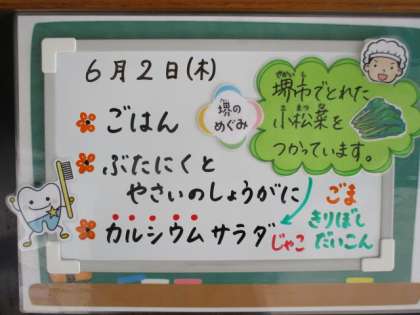 6月2日(木)
ごはん
堺の
めぐみ
堺市でとれた
小松菜を
つかっています。
ぶたにくと
やさいのしょうがに
カルシウムサラダ
ごま
きりぼし
だいこん
じゃこ